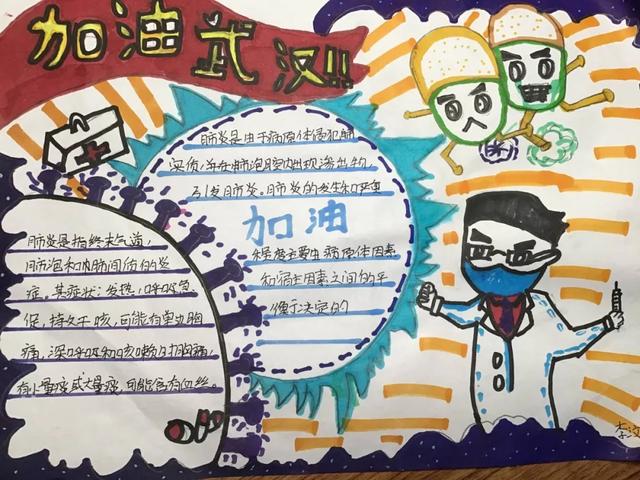 加油武汉!!
肺炎是由于病原体侵犯肺
实质,并在肺泡腔内出现渗出物,
引发肺炎。肺炎的发生和严重
加油
程度主要由病原体因素
和宿主因素之间的平
衡决定的
肺炎是指终末气道,
肺泡和肺间质的炎
症。其症状:发热,呼吸急
促,持久干咳,可能有单边胸
痛,深呼吸和咳嗽时胸痛,
有小量痰或大量痰,可能含有血丝。
李